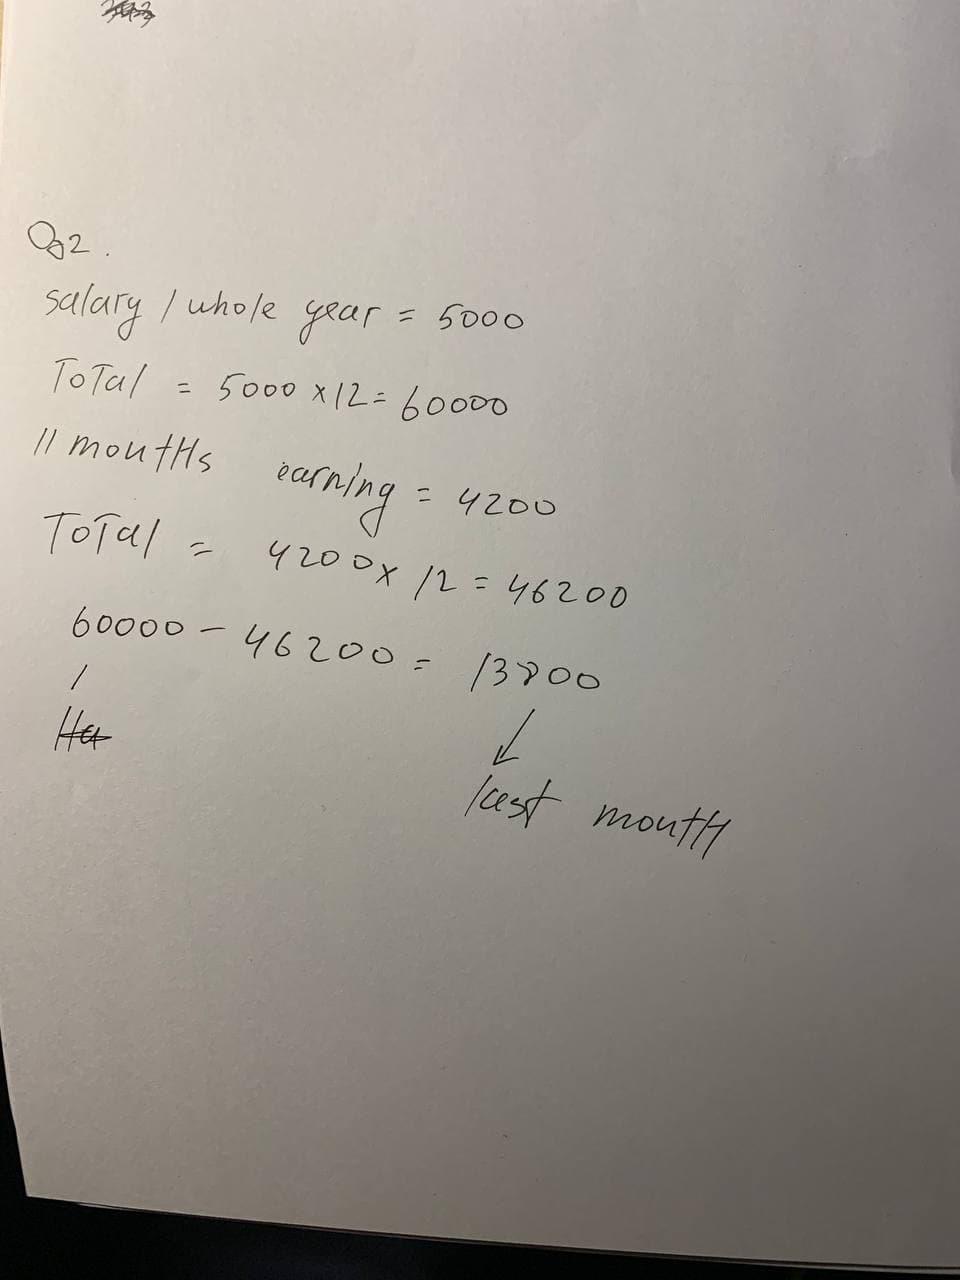 Q2.
salary / whole year = 5000
Total = 5000 x 12 = 60000
11 months earning = 4200
Total = 4200 x 12 = 46200
60000 - 46200 = 13800
last month